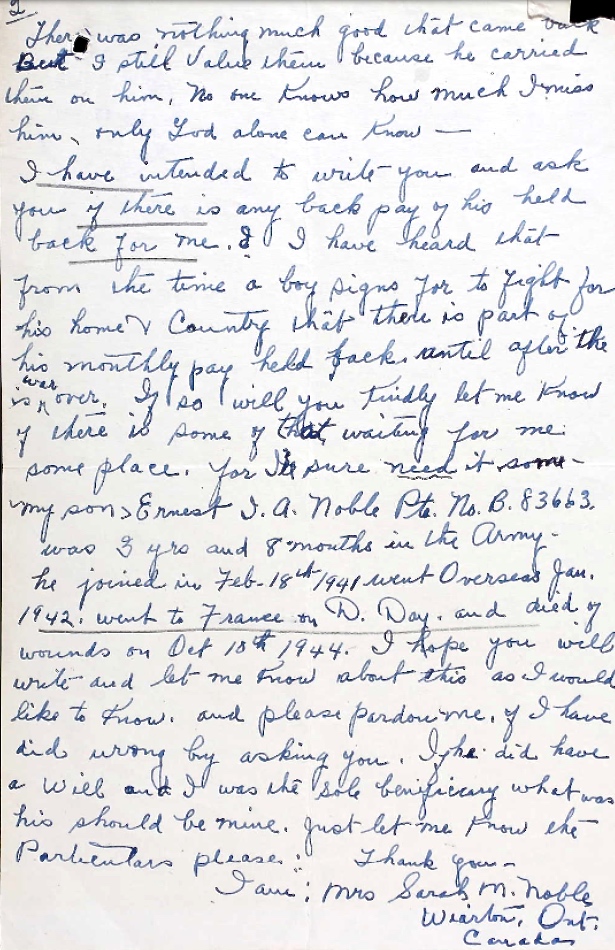 2
There was nothing much good that came back
But I still Value them because he carried
them on him. No one Knows how much I miss
him, only God alone can Know —
I have intended to write you and ask
you if there is any back pay of his held
back for me. & I have heard that
from the time a boy signs for to fight for
his home & County that there is part of
his monthly pay held back until after the
war
is ^ over. If so will you Kindly let me Know
if there is some of that waiting for me
some place. for I'm sure need it some-
my son, Ernest I. A. Noble Pte. No. B. 83663.
was 3 yrs and 8 months in the Army-
he joined in Feb-18th 1941 went Overseas Jan.
1942. went to France on D. Day. and died of
wounds on Oct 10th 1944. I hope you will
write and let me Know about this as I would
like to Know. and please pardon me, if I have
did wrong by asking you. If he did have
a Will and I was the sole benificiary what was
his should be mine. Just let me Know the
Particulars please: Thank you-
I am: Mrs Sarah M. Noble
Wiarton, Ont.
Canada